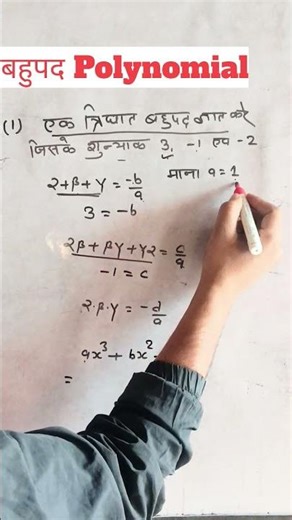 बहुपद Polynomial
(1) एक त्रिघात बहुपद ज्ञात करे
जिसके शुन्याक 3, -1 एव -2
2+β+γ = -b/a माना a=1
3 = -b
2β+βγ+γ2 = c/a
-1 = c
2·β·γ = -d/a
ax³ + bx²
=